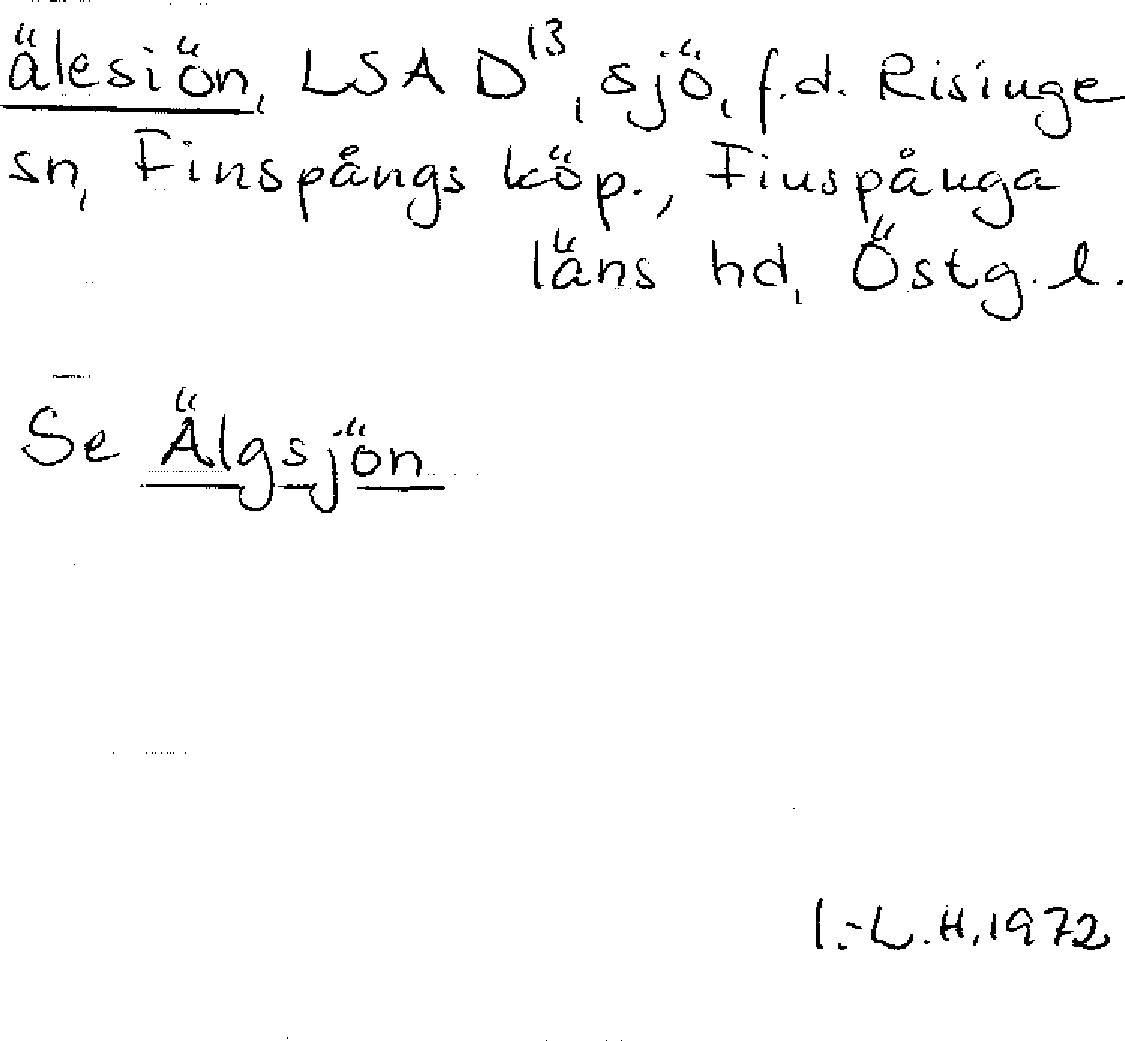 älesiön, LSA D¹³, sjö, f.d. Risinge
sn, Finspångs köp., Finspånga
läns hd, Östg.l.
Se Älgsjön
I.-L.H.1972